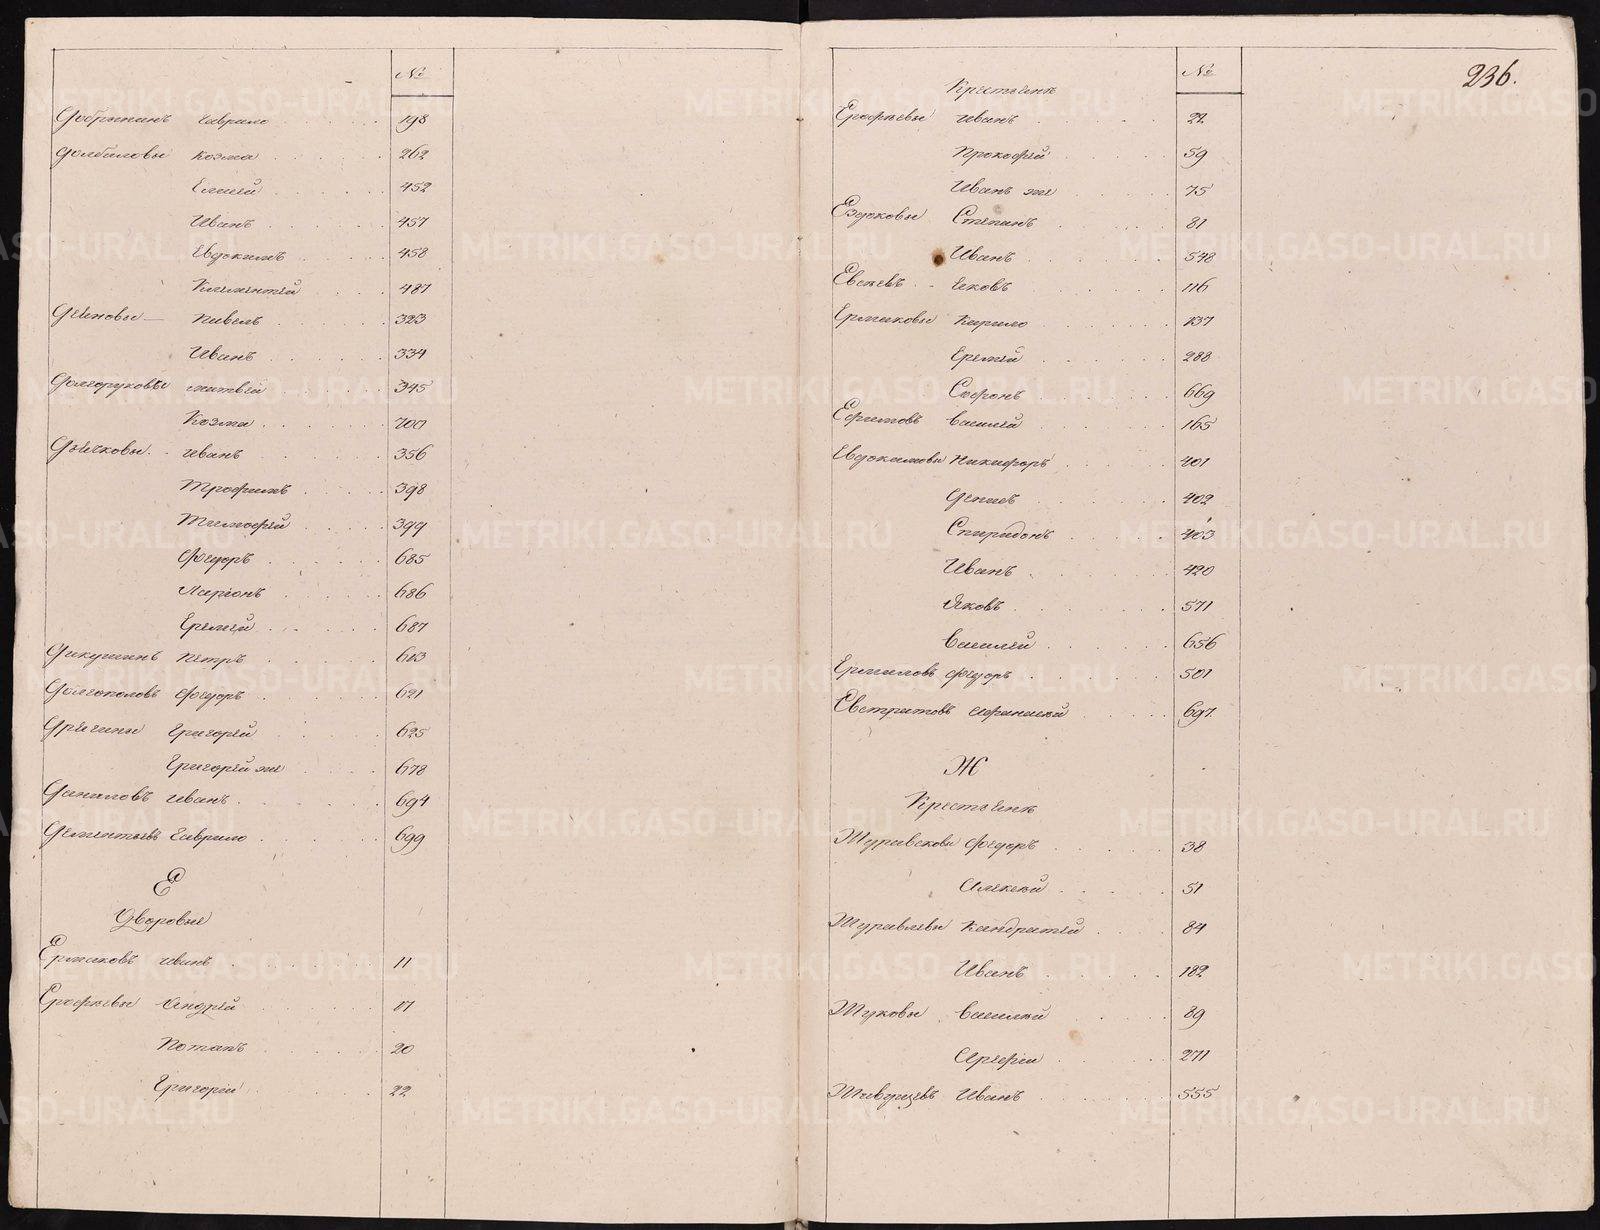 №
Добрынинъ Гаврило 198
Долбиловы Козма 262
Елисей 452
Иванъ 457
Евдокимъ 458
Климентей 487
Деиновы Павелъ 323
Иванъ 334
Долгоруковы Матвей 345
Козма 700
Дьячковы Иванъ 356
Трофимъ 398
Тимофей 399
Федоръ 685
Ларионъ 686
Еремей 687
Дикушинъ Петръ 613
Долгополовъ Федоръ 621
Дрягины Григорей 625
Григорей же 678
Даниловъ Иванъ 694
Дементьевъ Гаврило 699
Е
Дворовые
Ермаковъ Иванъ 11
Ерофѣевы Андрей 17
Потапъ 20
Григорей 22
236.
№
Крестьянъ
Ерофѣевы Иванъ 22
Прокофей 59
Иванъ же 75
Ездоковы Степанъ 81
Иванъ 548
Евсѣевъ Яковъ 116
Ермаковы Кирило 137
Еремей 288
Софонъ 669
Ефимовъ Василей 165
Евдокимовы Никифоръ 401
Денисъ 402
Спиридонъ 403
Иванъ 420
Яковъ 571
Василей 656
Ермиловъ Федоръ 501
Евстратовъ Афанасей 697
Ж
Крестьянъ
Журавсковы Федоръ 38
Алексей 51
Журавлевы Кандратей 84
Иванъ 182
Жуковы Василей 89
Арефей 271
Иванъ 555
METRIKI.GASO-URAL.RU